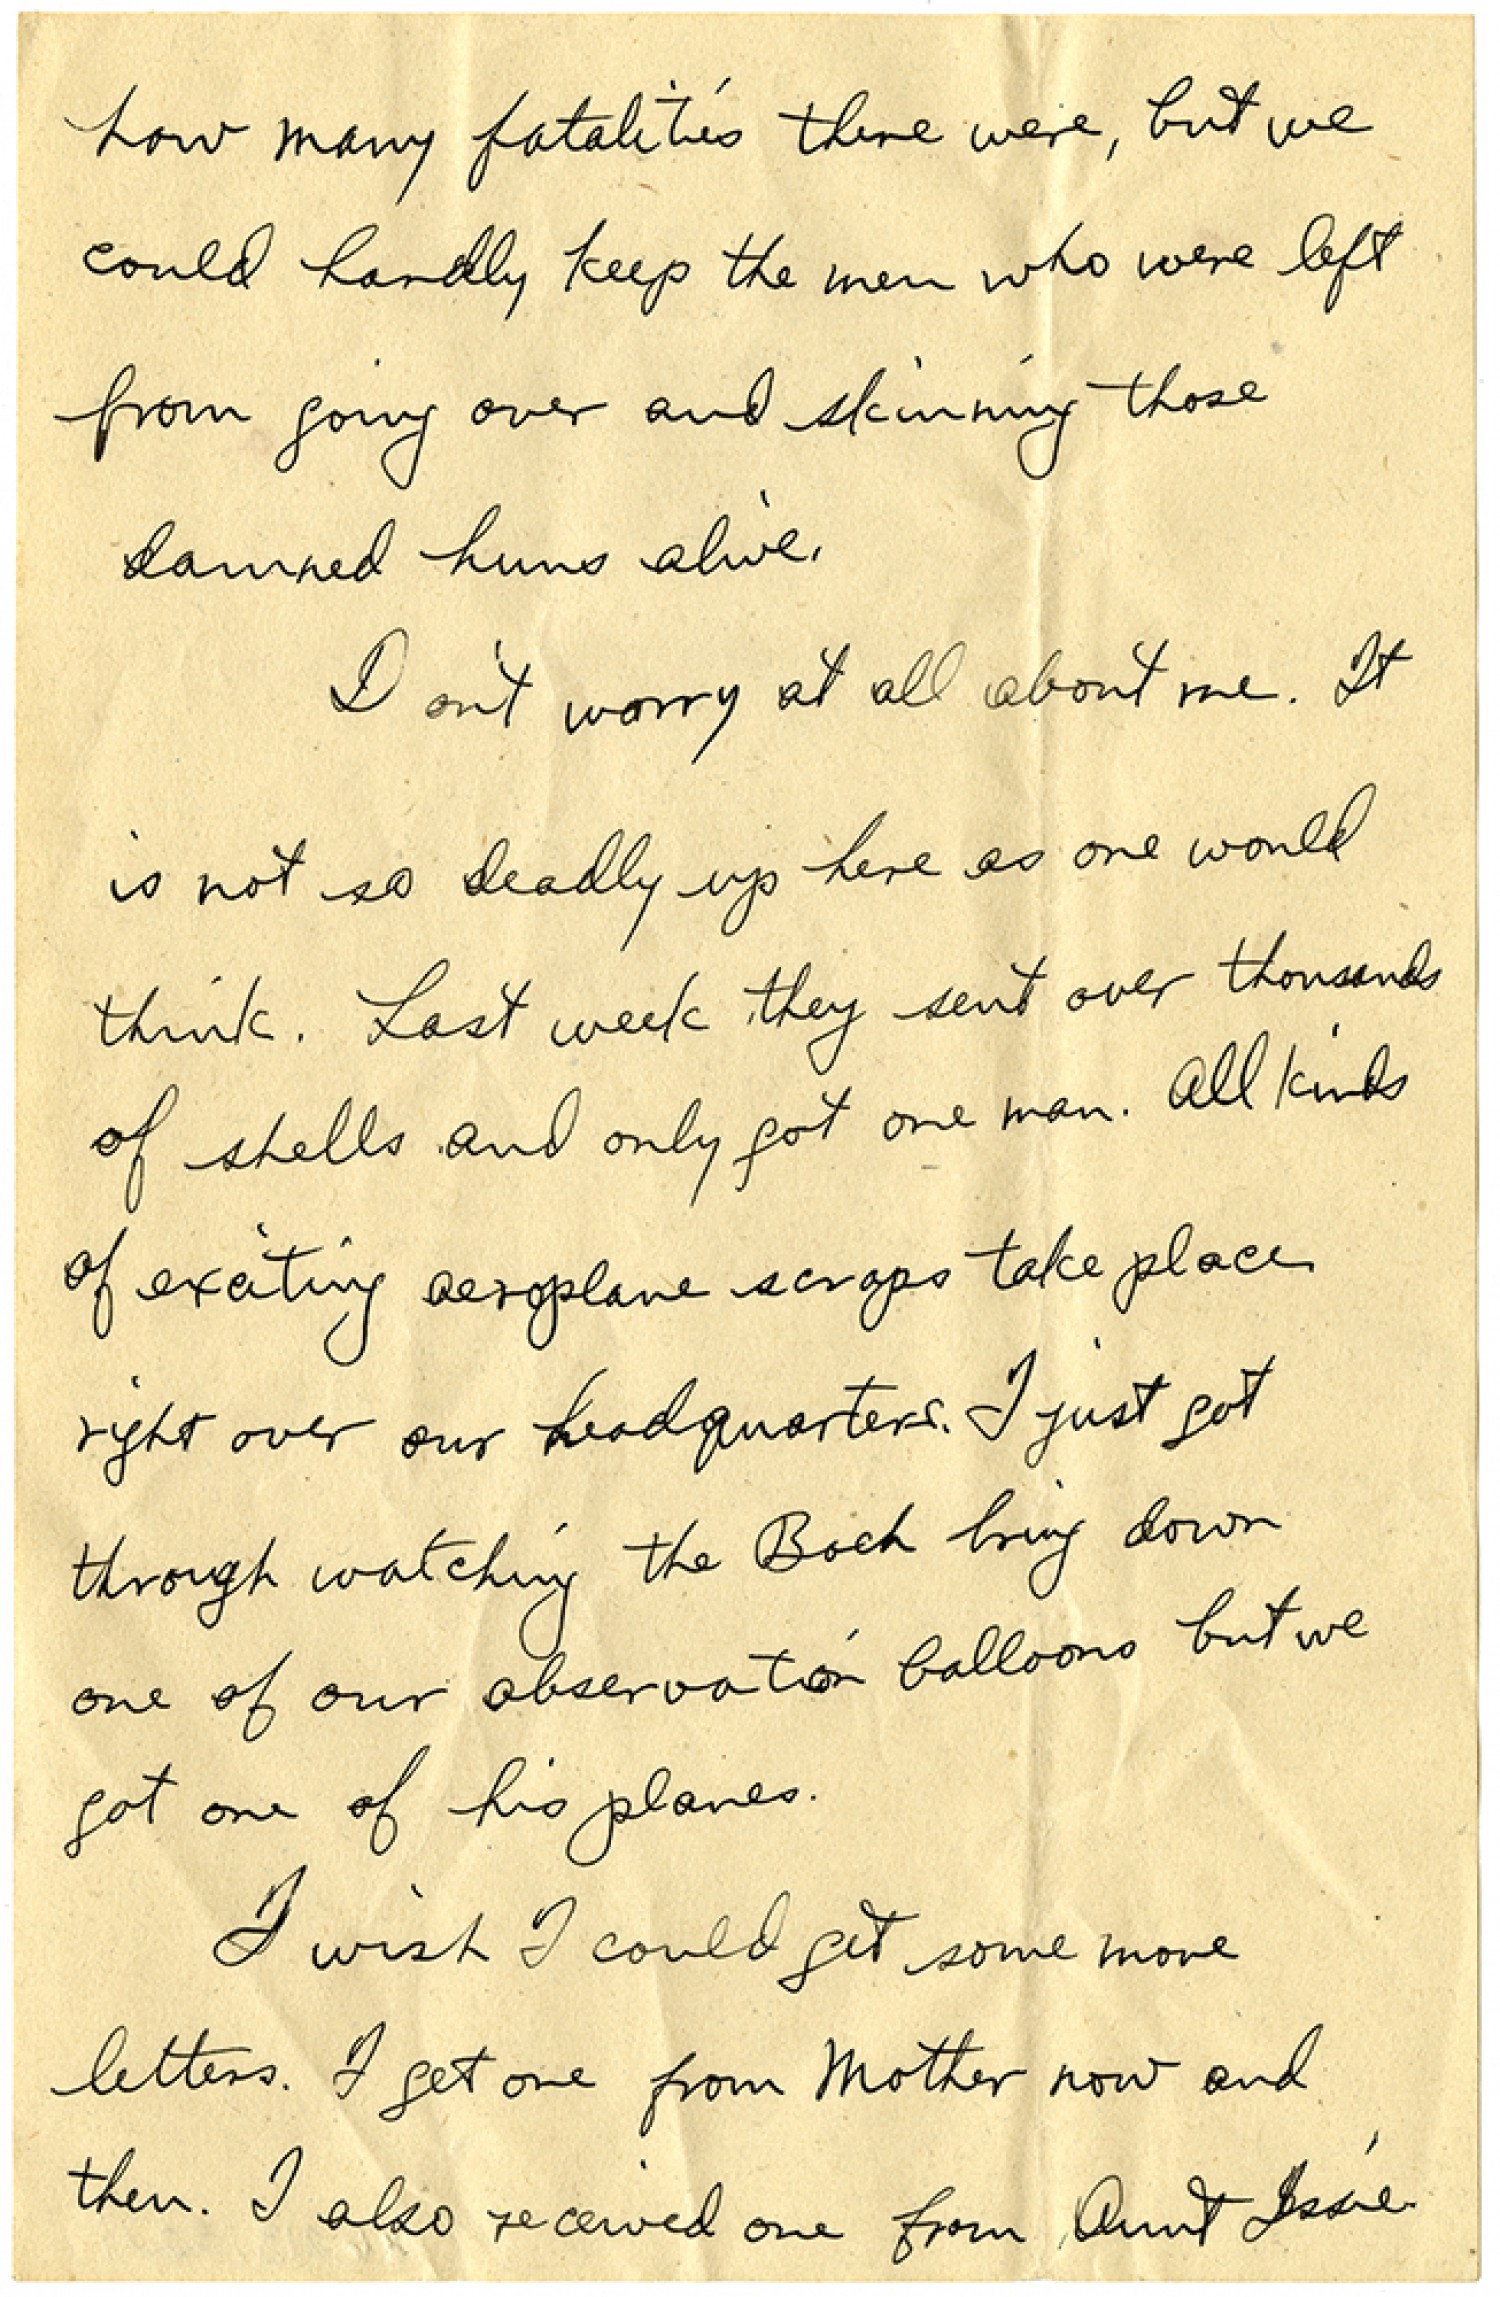 how many fatalities there were, but we
could hardly keep the men who were left
from going over and skinning those
damned huns alive.
Don't worry at all about me. It
is not so deadly up here as one would
think. Last week they sent over thousands
of shells and only got one man. All kinds
of exciting aeroplane scraps take place
right over our headquarters. I just got
through watching the Boch bring down
one of our observation balloons but we
got one of his planes.
I wish I could get some more
letters. I get one from Mother now and
then. I also received one from Aunt Issie